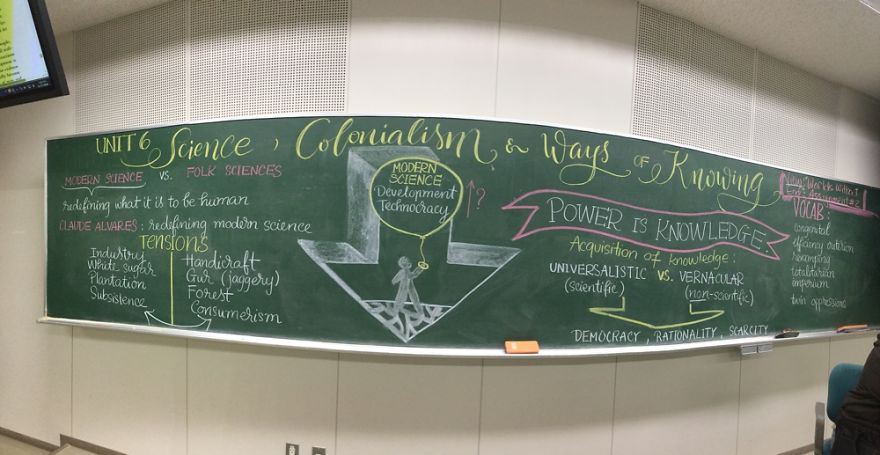 UNIT 6 Science, Colonialism & Ways of Knowing
MODERN SCIENCE VS. FOLK SCIENCES
redefining what it is to be human
CLAUDE ALVARES: redefining modern science
TENSIONS
Industry
White sugar
Plantation
Subsistence
Handicraft
Gur (jaggery)
Forest
Consumerism
MODERN
SCIENCE
Development
Technocracy
?
POWER IS KNOWLEDGE
Acquisition of knowledge:
UNIVERSALISTIC VS. VERNACULAR
(scientific) (non-scientific)
DEMOCRACY, RATIONALITY, SCARCITY
VOCAB:
congenital
revamping
totalitarian
imperium
twin oppressions